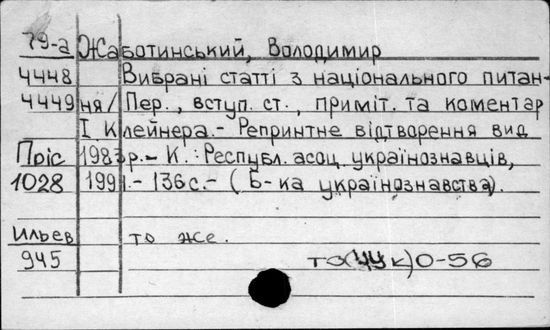 79-а Жаботинський, Володимир
4448 Вибрані статті з національного питан-
4449 ня/ Пер., вступ. ст., приміт. та коментар
І Клейнера.- Репринтне відтворення вид
Пріс 1983р.- К.: Республ. асоц. українознавців,
1028 1991.- 136с.- ( Б-ка українознавства).
Ильев то же.
945 0-56